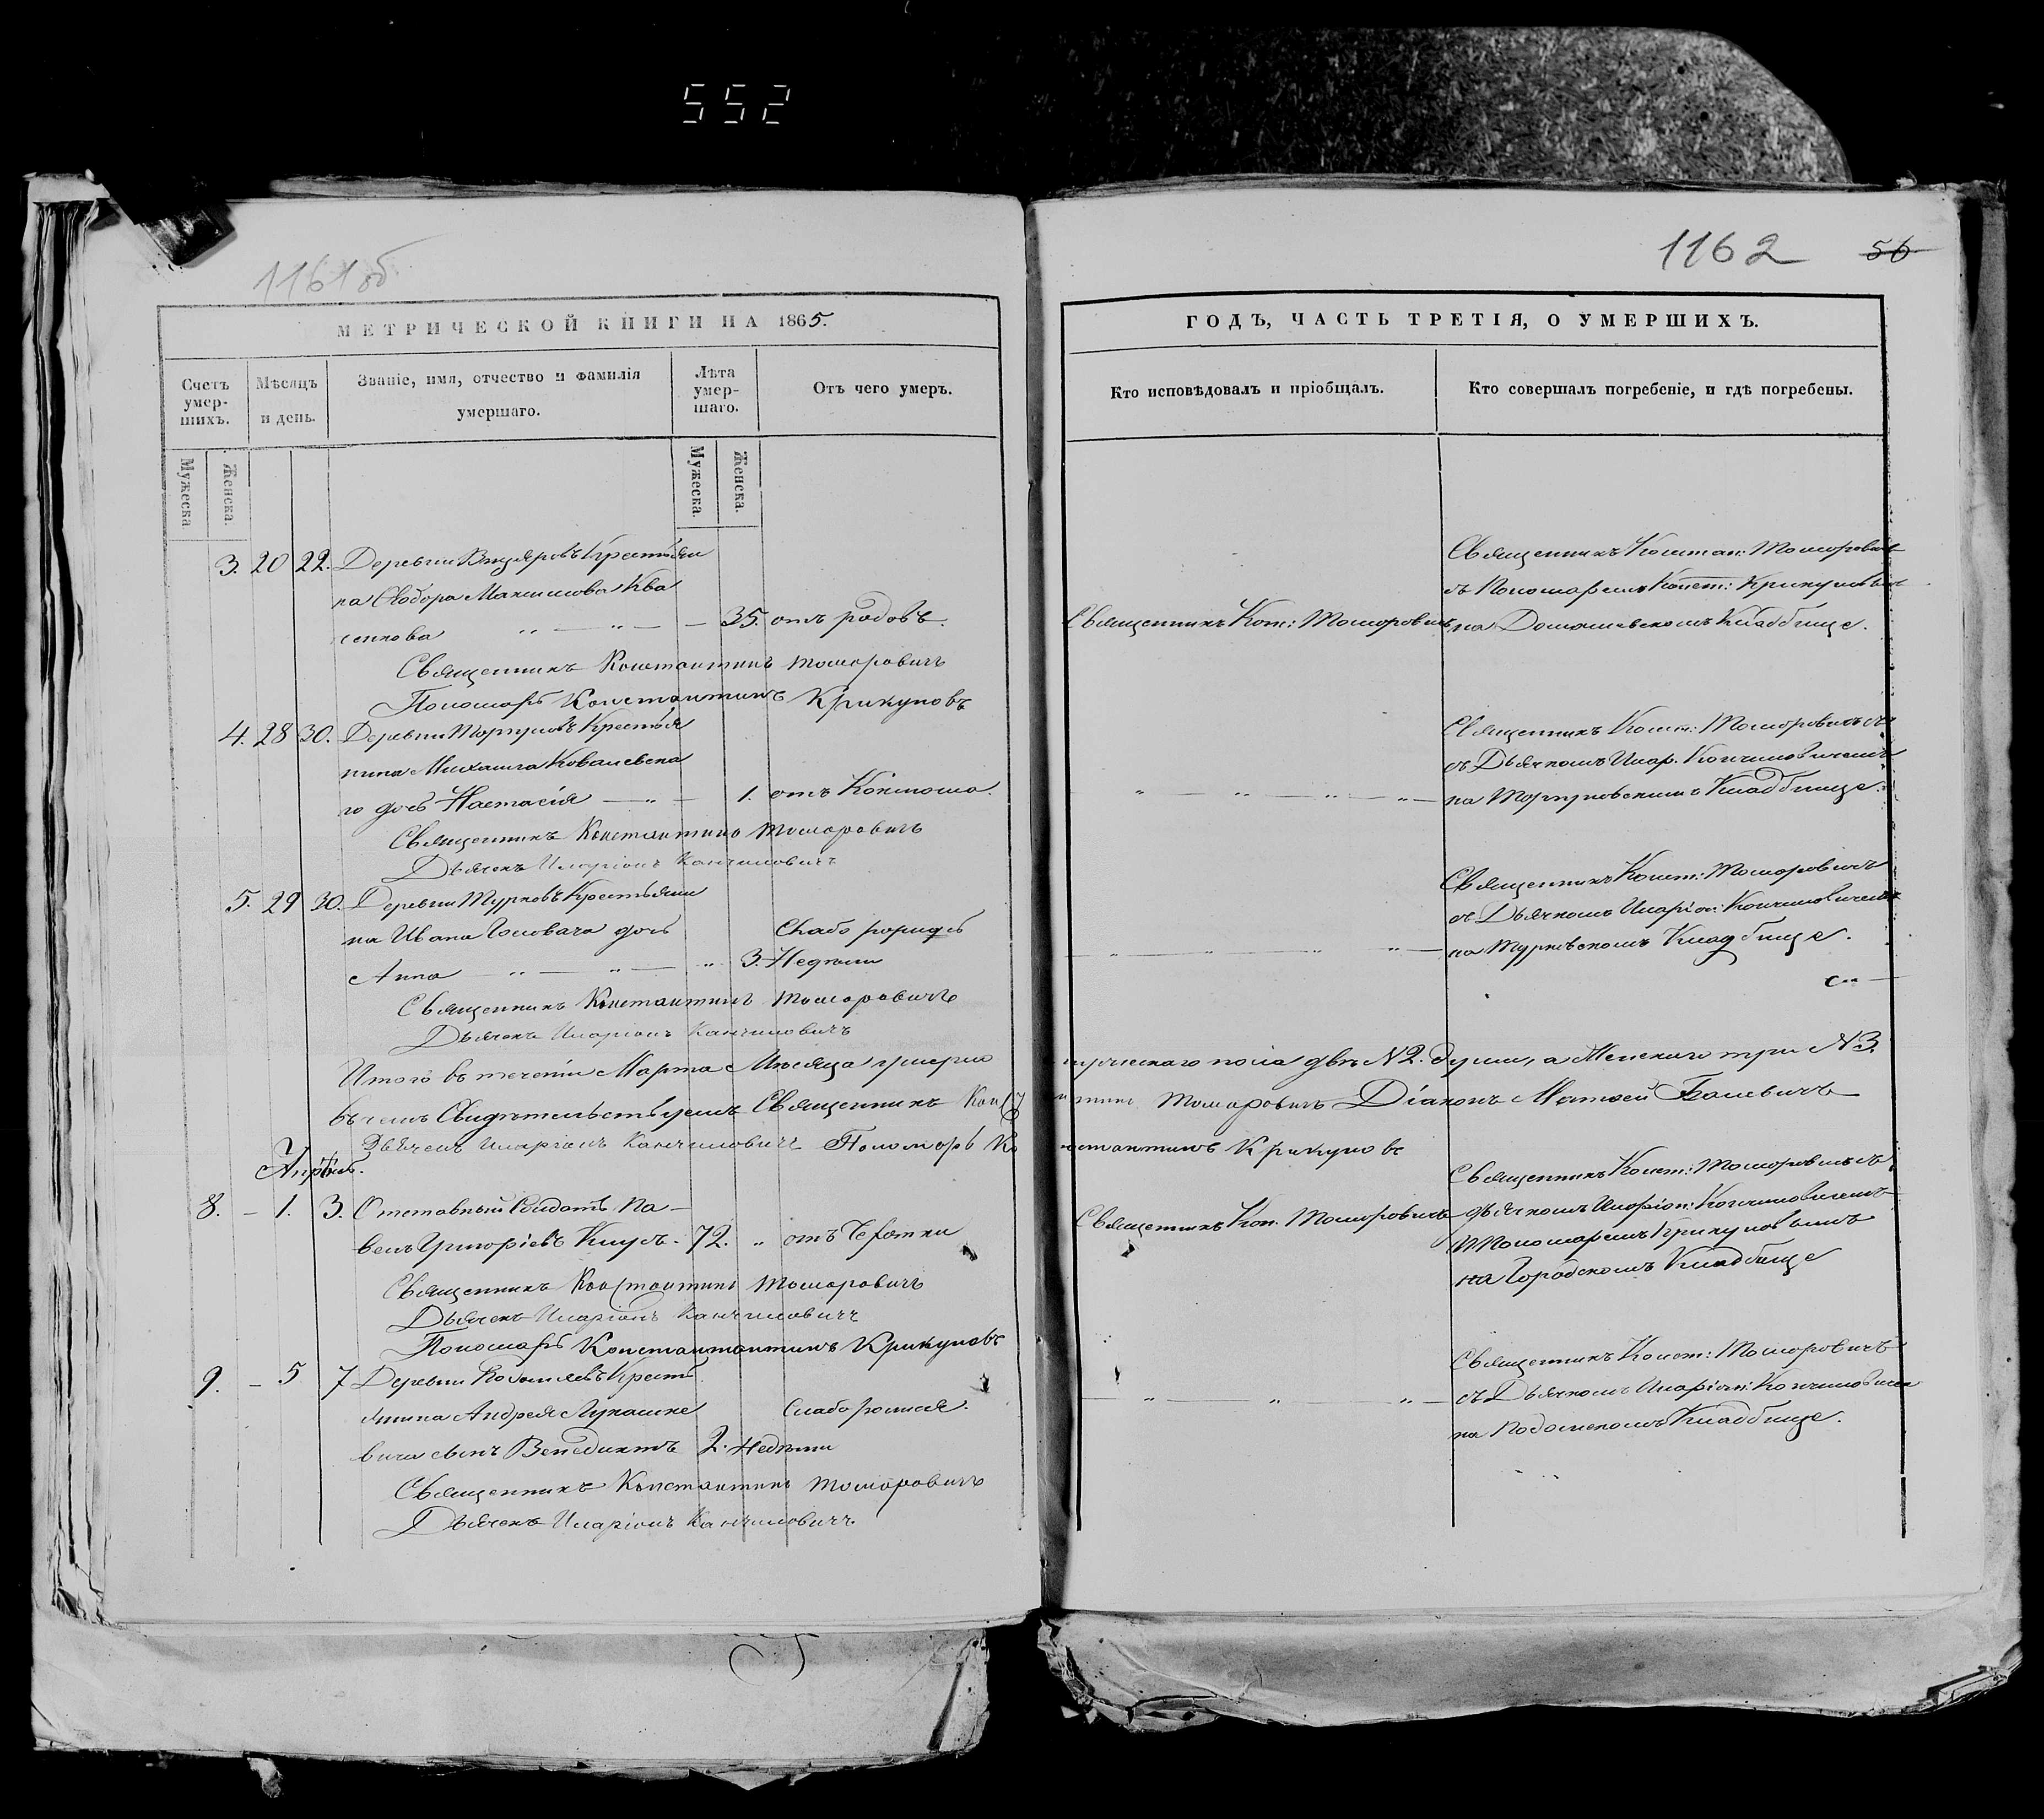 552
1161 об
МЕТРИЧЕСКОЙ КНИГИ НА 1865.
Счетъ умер-шихъ.
Мѣсяцъ и день.
Званіе, имя, отчество и фамилія умершаго.
Лѣта умер-шаго.
Отъ чего умеръ.
Мужеска.
Женска.
Мужеска.
Женска.
3. 20 22. Деревни Крестьян
ка Ѳедора Максимова Ква
сенкова 35. отъ родовъ.
Священникъ Константинъ Томаровичъ
Пономарь Константинъ Крикуновъ
4. 28 30. Деревни Крестья
нина Михаила Ковалевска
го дочь Настасія 1. отъ Коклюша.
Священникъ Константинъ Томаровичъ
Дьячекъ Иларіонъ Канчиловичъ
5. 29 30. Деревни Турковъ Крестьяни
на Ивана Головача дочь Слабо
Анна 3. Недѣли
Священникъ Константинъ Томаровичъ
Дьячекъ Иларіонъ Канчиловичъ
Итого въ теченіи Марта Мѣсяца умерло
въ чемъ Свидѣтельствуемъ Священникъ Конс
Дьячекъ Иларіонъ Канчиловичъ Пономарь Ко
Апрѣль.
8. – 1. 3. Отставный Солдатъ Па-
велъ Григоріевъ 72. „ отъ Чехотки
Священникъ Константинъ Томаровичъ
Дьячекъ Иларіонъ Канчиловичъ
Пономарь Константантинъ Крикуновъ
9. – 5 7 Деревни Крестъ
янина Андрея Лукашке
вича сынъ Венедиктъ 2. Недѣли
Священникъ Константинъ Томаровичъ
Дьячекъ Иларіонъ Канчиловичъ
1162 56
ГОДЪ, ЧАСТЬ ТРЕТІЯ, О УМЕРШИХЪ.
Кто исповѣдовалъ и пріобщалъ.
Кто совершалъ погребеніе, и гдѣ погребены.
Священникъ Констан: Томаровичъ
съ Пономаремъ Конст: Крикуновымъ
Священникъ Кон: Томаровичъ на Кладбище.
Священникъ Конст: Томаровичъ
съ Дьячкомъ Илар. Канчиловичемъ
на Кладбище.
Священникъ Конст: Томаровичъ
съ Дьячкомъ Иларіон: Канчиловичемъ
на Турковскомъ Кладбище.
мужескаго пола двѣ N 2. души, а Женскаго три N 3.
нтинъ Томаровичъ Діаконъ Матѳей
нстантинъ Крикуновъ
Священникъ Конст: Томаровичъ съ
Священникъ Кон. Томаровичъ дьячкомъ Иларіон: Канчиловичемъ
и Пономаремъ Крикуновымъ
на Городскомъ Кладбище
Священникъ Конст: Томаровичъ
съ Дьячкомъ Иларіон: Канчиловичем
на Кладбище.